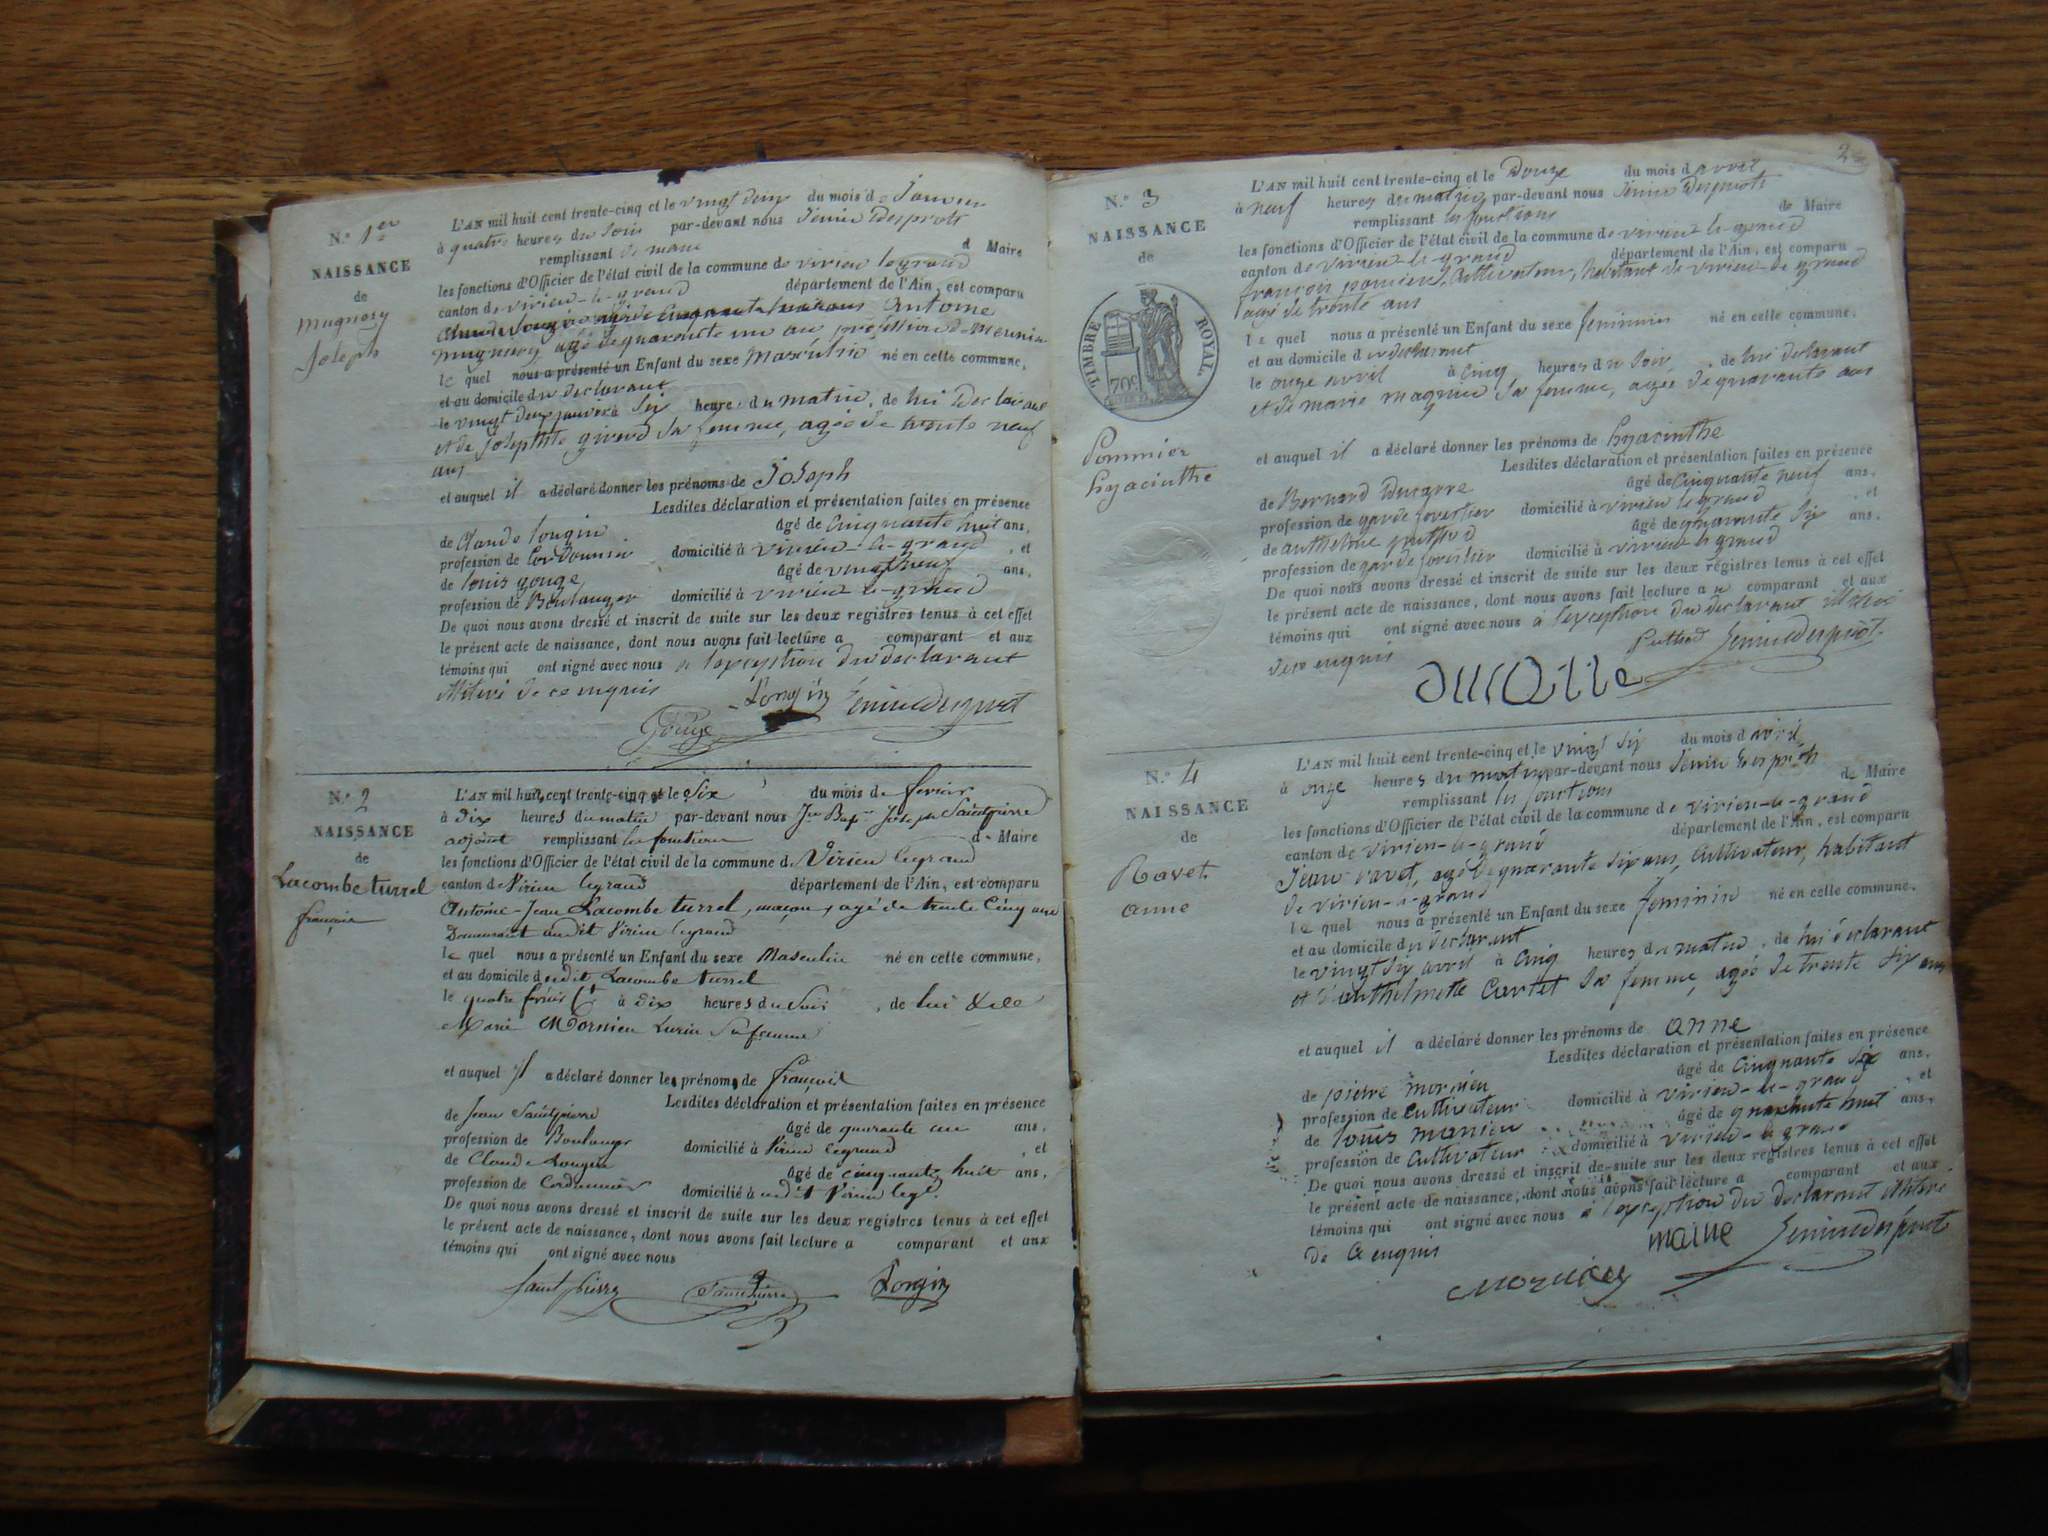 N.o 1er
NAISSANCE
de
mugnery
Joseph
L'AN mil huit cent trente-cinq et le vingt deux du mois de Janvier
à quatre heures du soir par-devant nous
remplissant de maire d Maire
les fonctions d'Officier de l'état civil de la commune de virieu legrand
canton de virieu-le-grand département de l'Ain, est comparu
antoine
mugnery agé de quarante un an profession de meunier
le quel nous a présenté un Enfant du sexe Masculin né en cette commune,
et au domicile du declarant
le vingt deux janvier à six heures du matin, de lui declarant
et de Josephte girerd sa femme, agée de trente neuf
ans
et auquel il a déclaré donner les prénoms de Joseph
Lesdites déclaration et présentation faites en présence
de Claude longin âgé de cinquante huit ans,
profession de Cordonnier domicilié à virieu-le-grand, et
de louis gouge âgé de vingt neuf ans,
profession de Boulanger domicilié à virieu le-grand
De quoi nous avons dressé et inscrit de suite sur les deux registres tenus à cet effet
le présent acte de naissance, dont nous avons fait lecture a comparant et aux
témoins qui ont signé avec nous a l'exception du declarant
illiteré de ce enquis
Longin
Gouge
N.o 2
NAISSANCE
de
Lacombe turrel
françois
L'AN mil huit cent trente-cinq et le Six du mois de fevrier
à Dix heures du matin par-devant nous Jn Bapte Joseph Saintpierre
adjoint remplissant les fonctions de Maire
les fonctions d'Officier de l'état civil de la commune de Virieu legrand
canton de Virieu legrand département de l'Ain, est comparu
Antoine-Jean Lacombe turrel, maçon, agé de trente Cinq ans
Demeurant audit Virieu legrand
le quel nous a présenté un Enfant du sexe Masculin né en cette commune,
et au domicile dudit Lacombe turrel
le quatre à dix heures du Soir, de lui & de
Marie Mornieu Sa femme
et auquel il a déclaré donner les prénoms de françois
Lesdites déclaration et présentation faites en présence
de Jean Saintpierre âgé de quarante un ans,
profession de Boulanger domicilié à Virieu legrand, et
de Claude Longin âgé de cinquante huit ans,
profession de Cordonnier domicilié à udit Virieu legd.
De quoi nous avons dressé et inscrit de suite sur les deux registres tenus à cet effet
le présent acte de naissance, dont nous avons fait lecture a comparant et aux
témoins qui ont signé avec nous
Saint pierre Saintpierre Longin
2
N.o 3
NAISSANCE
de
TIMBRE ROYAL.
70c
Pommier
hyacinthe
L'AN mil huit cent trente-cinq et le Douze du mois d avril
à neuf heures du matin par-devant nous
remplissant les fonctions de Maire
les fonctions d'Officier de l'état civil de la commune de virieu le-grand
canton de virieu-le-grand département de l'Ain, est comparu
françois pommier, Cultivateur, habitant de virieu-le grand
agé de trente ans
le quel nous a présenté un Enfant du sexe feminin né en cette commune,
et au domicile du declarant
le onze avril à cinq heures du soir, de lui declarant
et de marie sa femme, agée de quarante ans
et auquel il a déclaré donner les prénoms de hyacinthe
Lesdites déclaration et présentation faites en présence
de Bernard Ducarre âgé de Cinquante neuf ans,
profession de garde forestier domicilié à virieu le grand, et
de anthelme âgé de quarante six ans,
profession de garde forestier domicilié à virieu le grand
De quoi nous avons dressé et inscrit de suite sur les deux registres tenus à cet effet
le présent acte de naissance, dont nous avons fait lecture a comparant et aux
témoins qui ont signé avec nous à l'exception du declarant illiteré
de ce enquis
N.o 4
NAISSANCE
de
Ravet
anne
L'AN mil huit cent trente-cinq et le vingt six du mois d avril
à onze heures du matin par-devant nous
remplissant les fonctions de Maire
les fonctions d'Officier de l'état civil de la commune de virieu-le-grand
canton de virieu-le-grand département de l'Ain, est comparu
Jean ravet, agé de quarante six ans, Cultivateur, habitant
de virieu-le-grand
le quel nous a présenté un Enfant du sexe feminin né en cette commune,
et au domicile du declarant
le vingt six avril à cinq heures du matin, de lui declarant
et d'anthelmette Curtet sa femme, agée de trente six ans
et auquel il a déclaré donner les prénoms de anne
Lesdites déclaration et présentation faites en présence
de pierre mornieu âgé de Cinquante six ans,
profession de Cultivateur domicilié à virieu-le-grand, et
de louis âgé de quarante huit ans,
profession de Cultivateur domicilié à virieu-le grand
De quoi nous avons dressé et inscrit de suite sur les deux registres tenus à cet effet
le présent acte de naissance, dont nous avons fait lecture a comparant et aux
témoins qui ont signé avec nous a l'exception du declarant illiteré
de ce enquis